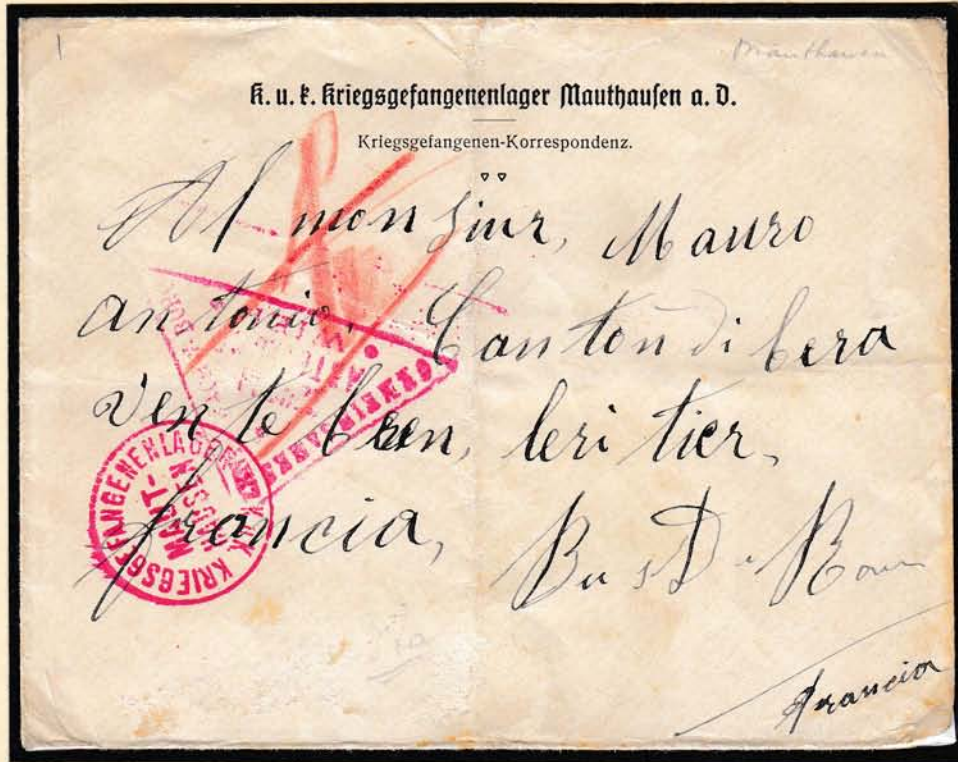 Mauthausen
K. u. k. Kriegsgefangenenlager Mauthausen a. D.
Kriegsgefangenen-Korrespondenz.
Al monsiur, Mauro
antonio. Canton di bera
ven te been, leri tier,
francia, Bus D Roun
Francia
K.u.K. KRIEGSGEFANGENENLAGER
MAUT-
HAUSEN